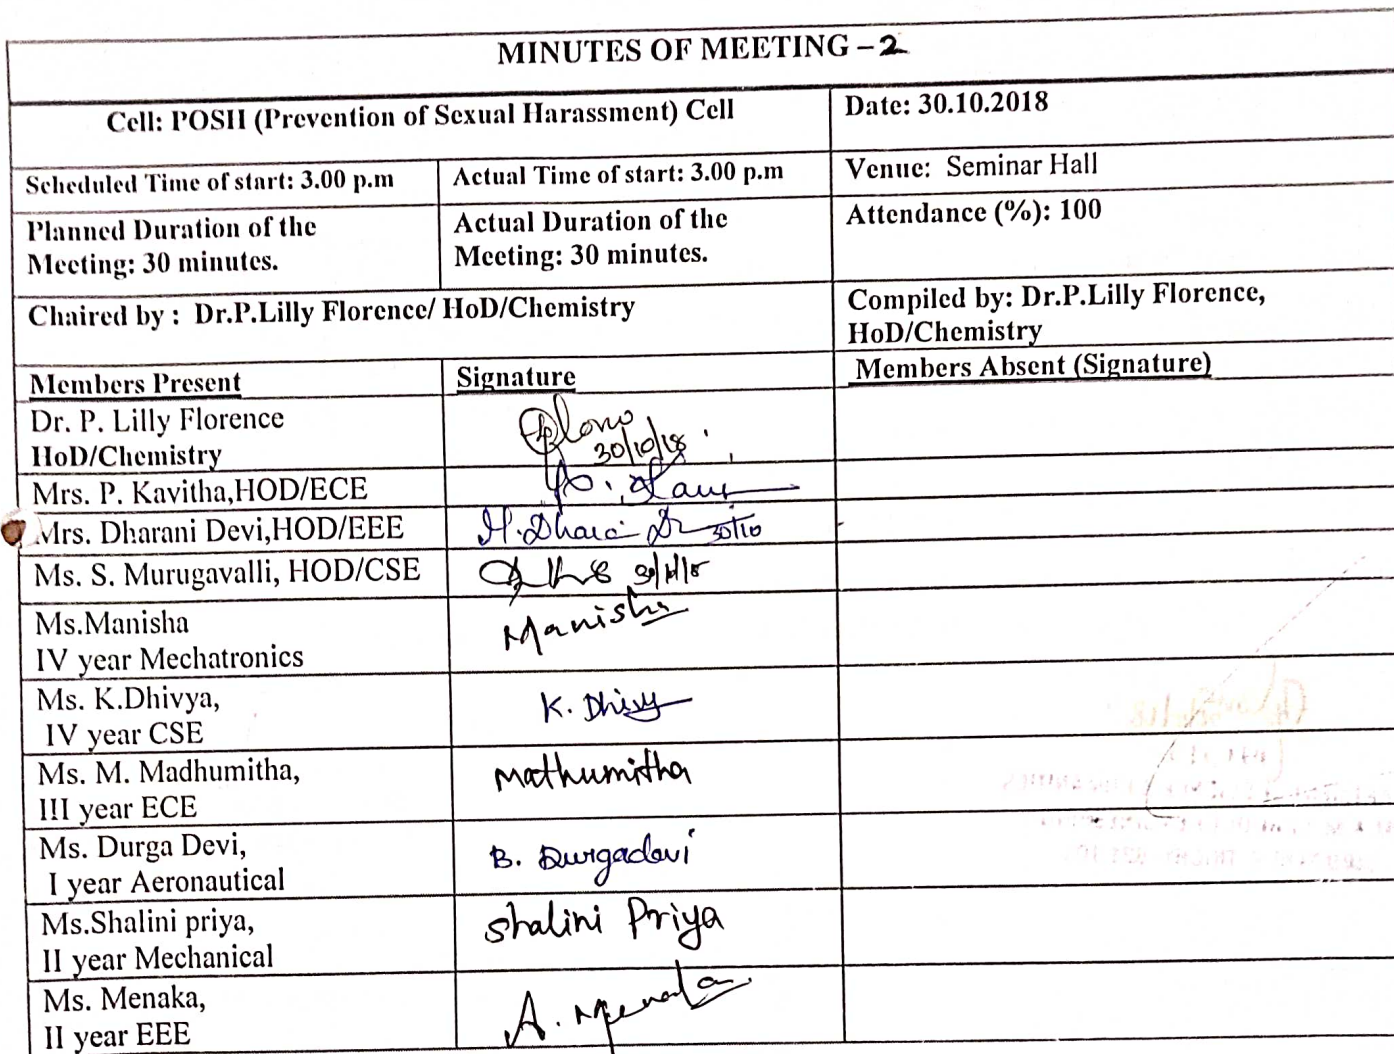 MINUTES OF MEETING – 2
Cell: POSH (Prevention of Sexual Harassment) Cell
Date: 30.10.2018
Scheduled Time of start: 3.00 p.m
Actual Time of start: 3.00 p.m
Venue: Seminar Hall
Planned Duration of the
Meeting: 30 minutes.
Actual Duration of the
Meeting: 30 minutes.
Attendance (%): 100
Chaired by : Dr.P.Lilly Florence/ HoD/Chemistry
Compiled by: Dr.P.Lilly Florence,
HoD/Chemistry
Members Present
Signature
Members Absent (Signature)
Dr. P. Lilly Florence
HoD/Chemistry
30/10/18
Mrs. P. Kavitha,HOD/ECE
Mrs. Dharani Devi,HOD/EEE
30/10
Ms. S. Murugavalli, HOD/CSE
Ms.Manisha
IV year Mechatronics
Manisha
Ms. K.Dhivya,
IV year CSE
K. Dhivy
Ms. M. Madhumitha,
III year ECE
Mathumitha
Ms. Durga Devi,
I year Aeronautical
B. Durgadevi
Ms.Shalini priya,
II year Mechanical
Shalini Priya
Ms. Menaka,
II year EEE
A. Menaka